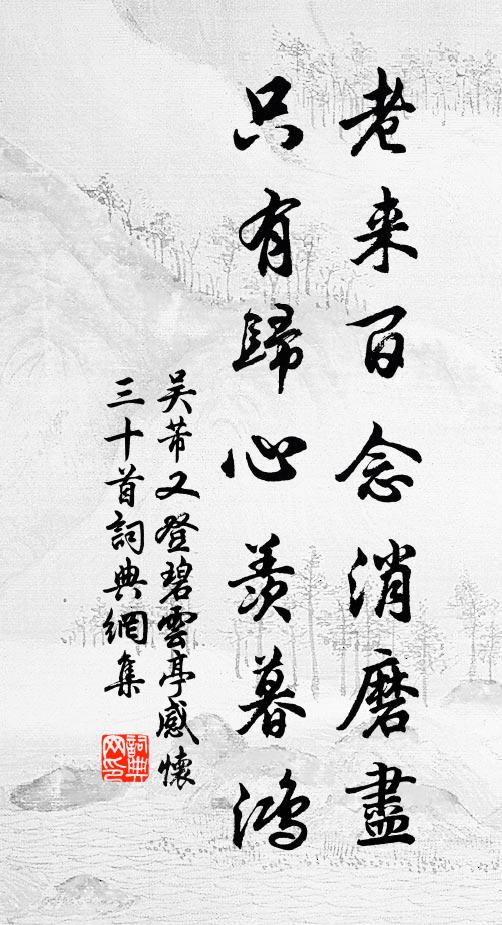 老来百念消磨盡
只有歸心羨暮鴻
吴芾又登碧雲亭感懷
三十首詞典網集
詞典網印